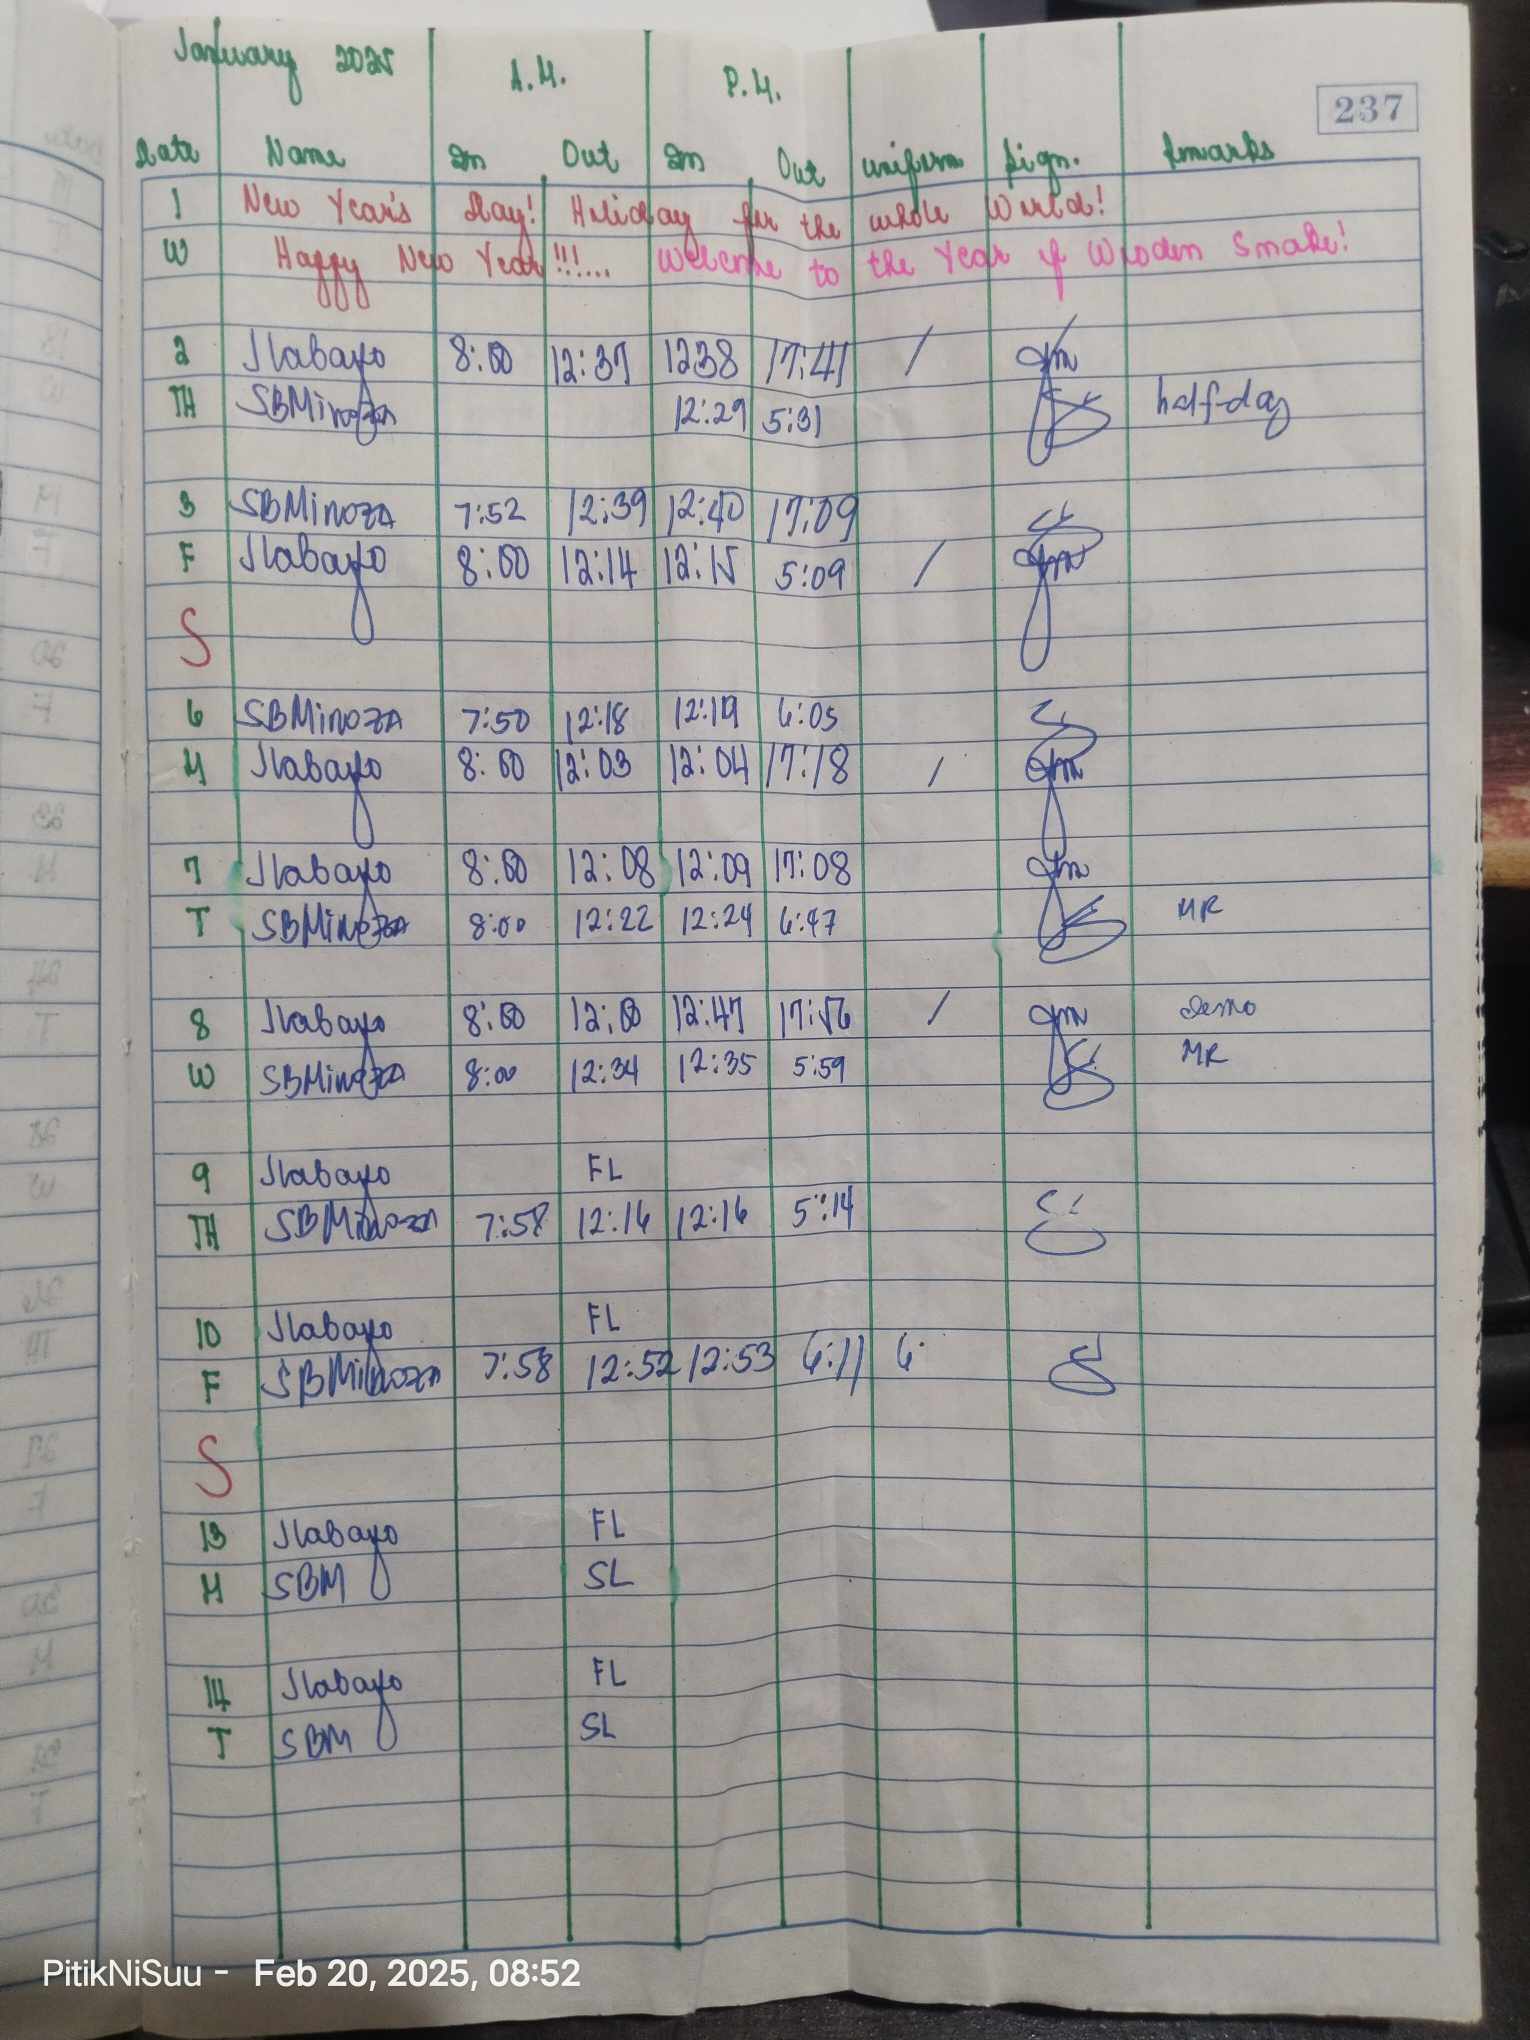 January 2025 A.M. P.M.
237
Date Name In Out In Out uniform Sign. Remarks
1 New Year's Day! Holiday for the whole World!
W Happy New Year!!!... Welcome to the Year of Wooden Snake!
2 Jlabayo 8:00 12:37 1238 17:41 /
TH SBMinoza 12:29 5:31 half-day
3 SBMinoza 7:52 12:39 12:40 17:09
F Jlabayo 8:00 12:14 12:15 5:09 /
S
6 SBMinoza 7:50 12:18 12:19 6:05
M Jlabayo 8:00 12:03 12:04 17:18 /
7 Jlabayo 8:00 12:08 12:09 17:08
T SBMinoza 8:00 12:22 12:24 6:47 MR
8 Jlabayo 8:00 12:00 12:47 17:56 / Demo
W SBMinoza 8:00 12:34 12:35 5:59 MR
9 Jlabayo FL
TH SBMinoza 7:58 12:16 12:16 5:14
10 Jlabayo FL
F SBMinoza 7:58 12:52 12:53 6:11 6:
S
13 Jlabayo FL
M SBM SL
14 Jlabayo FL
T SBM SL
PitikNiSuu - Feb 20, 2025, 08:52